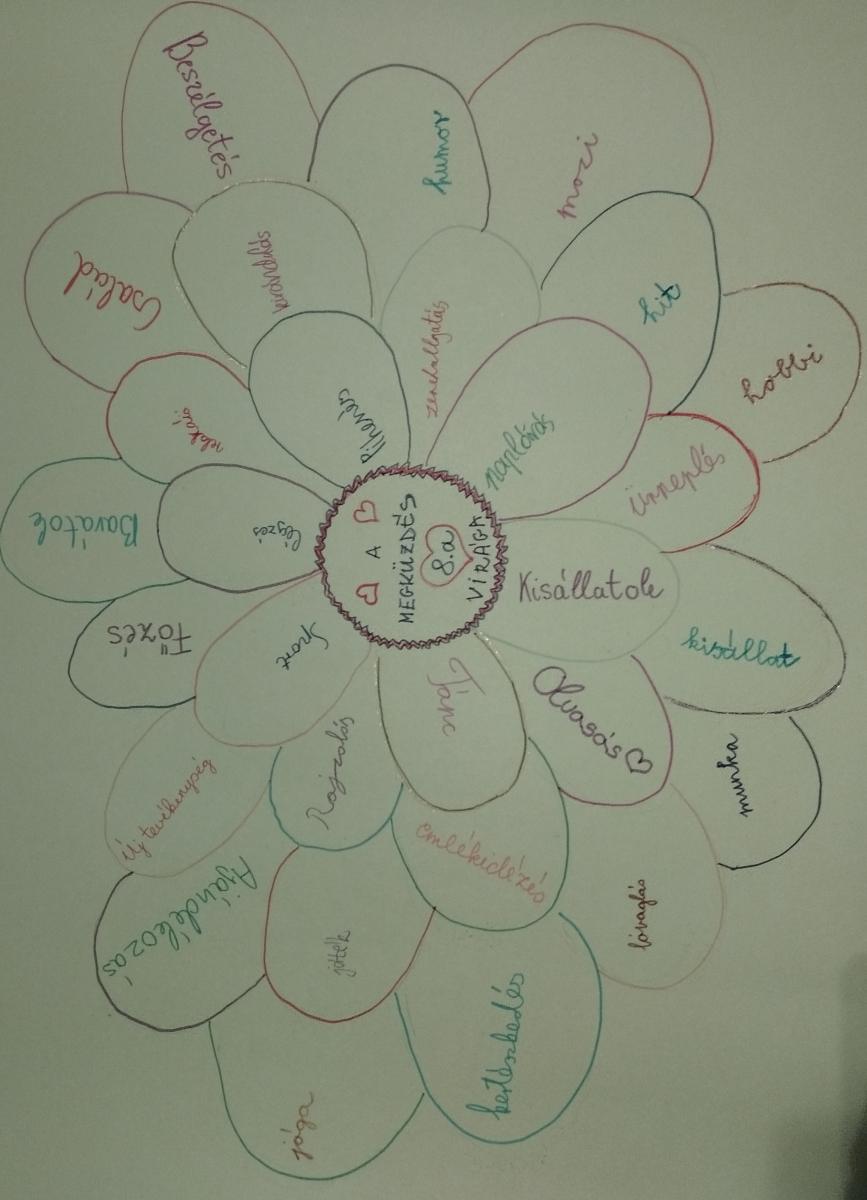 A
MEGKÜZDÉS
8.a
VIRÁGA
Beszélgetés
humor
mozi
hit
hobbi
ünneplés
kisállat
munka
lóvaglás
kertészkedés
jóga
Ajándékozás
új tevékenység
Főzés
Barátok
relaxáció
Család
kirándulás
zenehallgatás
naplóírás
Kisállatok
Olvasás
emlékidézés
játék
Rajzolás
Tánc
Sport
légzés
Pihenés